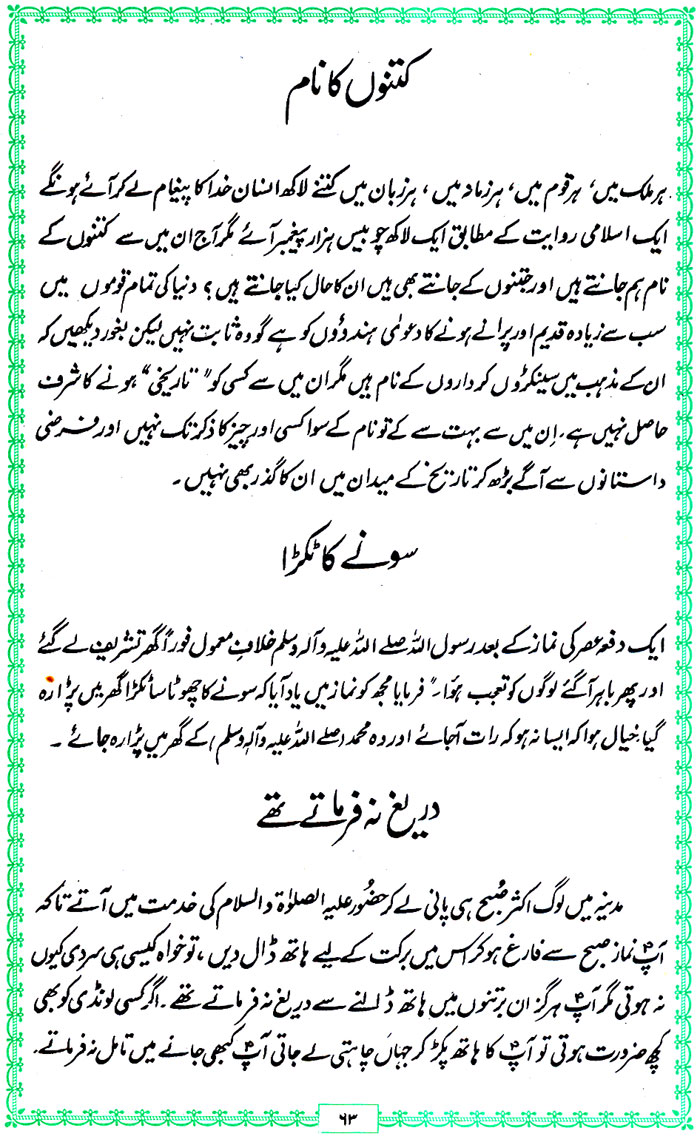 کتنوں کا نام
ہر ملک میں، ہر قوم میں، ہر زمانہ میں، ہر زبان میں کتنے لاکھ انسان خدا کا پیغام لے کر آئے ہونگے
ایک اسلامی روایت کے مطابق ایک لاکھ چوبیس ہزار پیغمبر آئے مگر آج ان میں سے کتنوں کے
نام ہم جانتے ہیں اور جتنوں کے جانتے بھی ہیں ان کا حال کیا جانتے ہیں؟ دنیا کی تمام قوموں میں
سب سے زیادہ قدیم اور پرانے ہونے کا دعویٰ ہندوؤں کو ہے گو وہ ثابت نہیں لیکن بغور دیکھیں کہ
ان کے مذہب میں سینکڑوں کرداروں کے نام ہیں مگر ان میں سے کسی کو "تاریخی" ہونے کا شرف
حاصل نہیں ہے۔ اِن میں سے بہت سے کے تو نام کے سوا کسی اور چیز کا ذکر تک نہیں اور فرضی
داستانوں سے آگے بڑھ کر تاریخ کے میدان میں ان کا گذر بھی نہیں۔
سونے کا ٹکڑا
ایک دفعہ عصر کی نماز کے بعد رسول اللہ صلے اللہ علیہ وآلہ وسلم خلافِ معمول فوراً گھر تشریف لے گئے
اور پھر باہر آگئے لوگوں کو تعجب ہوا۔" فرمایا مجھ کو نماز میں یاد آیا کہ سونے کا چھوٹا سا ٹکڑا گھر میں پڑا رہ
گیا۔ خیال ہوا کہ ایسا نہ ہو کہ رات آجائے اور وہ محمد (صلے اللہ علیہ وآلہ وسلم) کے گھر میں پڑا رہ جائے۔
دریغ نہ فرماتے تھے
مدینہ میں لوگ اکثر صُبح ہی پانی لے کر حضُور علیہ الصلوٰۃ والسلام کی خدمت میں آتے تاکہ
آپؐ نماز صبح سے فارغ ہو کر اس میں برکت کے لیے ہاتھ ڈال دیں، تو خواہ کیسی ہی سردی کیوں
نہ ہوتی مگر آپؐ ہرگز ان برتنوں میں ہاتھ ڈالنے سے دریغ نہ فرماتے تھے۔ اگر کسی لونڈی کو بھی
کچھ ضرورت ہوتی تو آپؐ کا ہاتھ پکڑ کر جہاں چاہتی لے جاتی آپؐ کبھی جانے میں تامل نہ فرماتے۔
۶۳